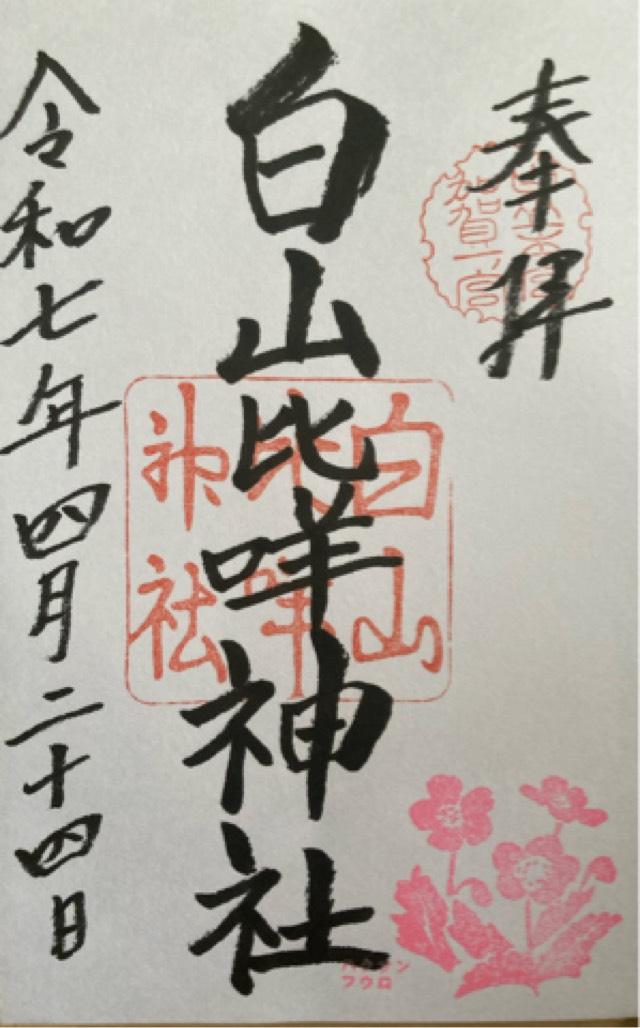 奉拝
加賀一宮
白山比咩神社
白山
比咩
神社
令和七年四月二十四日
ハクサン
フウロ